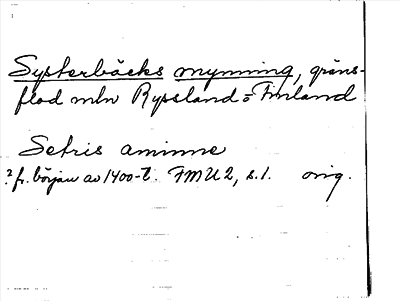 Systerbäcks mynning, gräns-
flod mln Ryssland o Finland
Setris aminne
? fr. början av 1400-t. FMU 2, s. 1. orig.